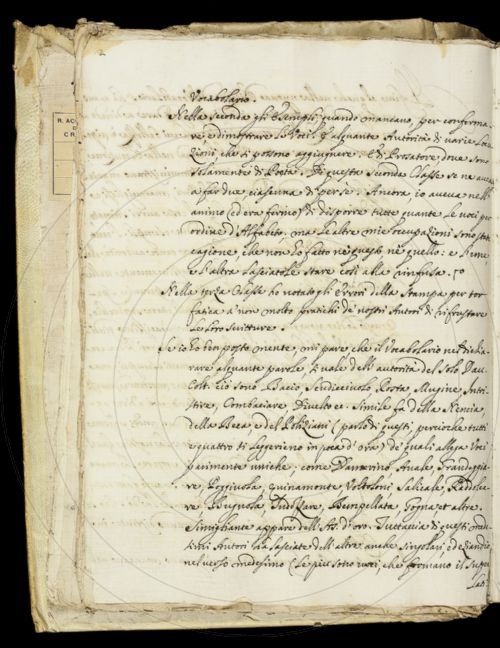 R. AC
D
CR
Vocabolario.
Nella seconda gli Esempli, quando mancano, per conferma-
re, e dimostrare le Voci; e alquante Autorità di varie Le-
zioni, che si possono aggiugnere. E di Prosatore dove sono
solamente di Poeta. Di questa seconda Classe se ne aveva
a far due ciascuna di per sè. Ancora io aveva nell'
animo (ed era fermo) di disporre tutte quante le voci per
ordine d'Alfabeto. ma le altre mie occupazioni sono state
cagione che non ho fatto nè questo nè quello: e l'une
e l'altra lasciatole stare così alla rinfusa.
Nella terza Classe ho notato gli Errori della Stampa per tor
fatica a' non molto pratichi de' nostri Autori di rifrustare
le loro scritture.
Se io ho ben posto mente, mi pare, che il Vocabolario nel dichia-
rare alquante parole, si vale dell'autorità del solo Dav.
Colt. ciò sono Bacio, Poota, Mugine, Intri-
stire, Combaciare Divelto ec. Simile fa della Nencia,
della Beca, e del Poliziani (parlo di questi, perciocchè tutti
e quattro si leggerieno in poca d'ora) de' quali allega Voci
parimente uniche, come Damerino Avale,
re Poggiuola, quinamonte Voltoloni Salicale,
re Bugnola, Gogna et altre.
Simigliante appare dell'As. d'oro. Tuttavia di questi mede-
simi Autori ha lasciate dell'altre anche singolari, ed eziandio
nel verso medesimo (le più sono voci, che formano il Super-
lat: